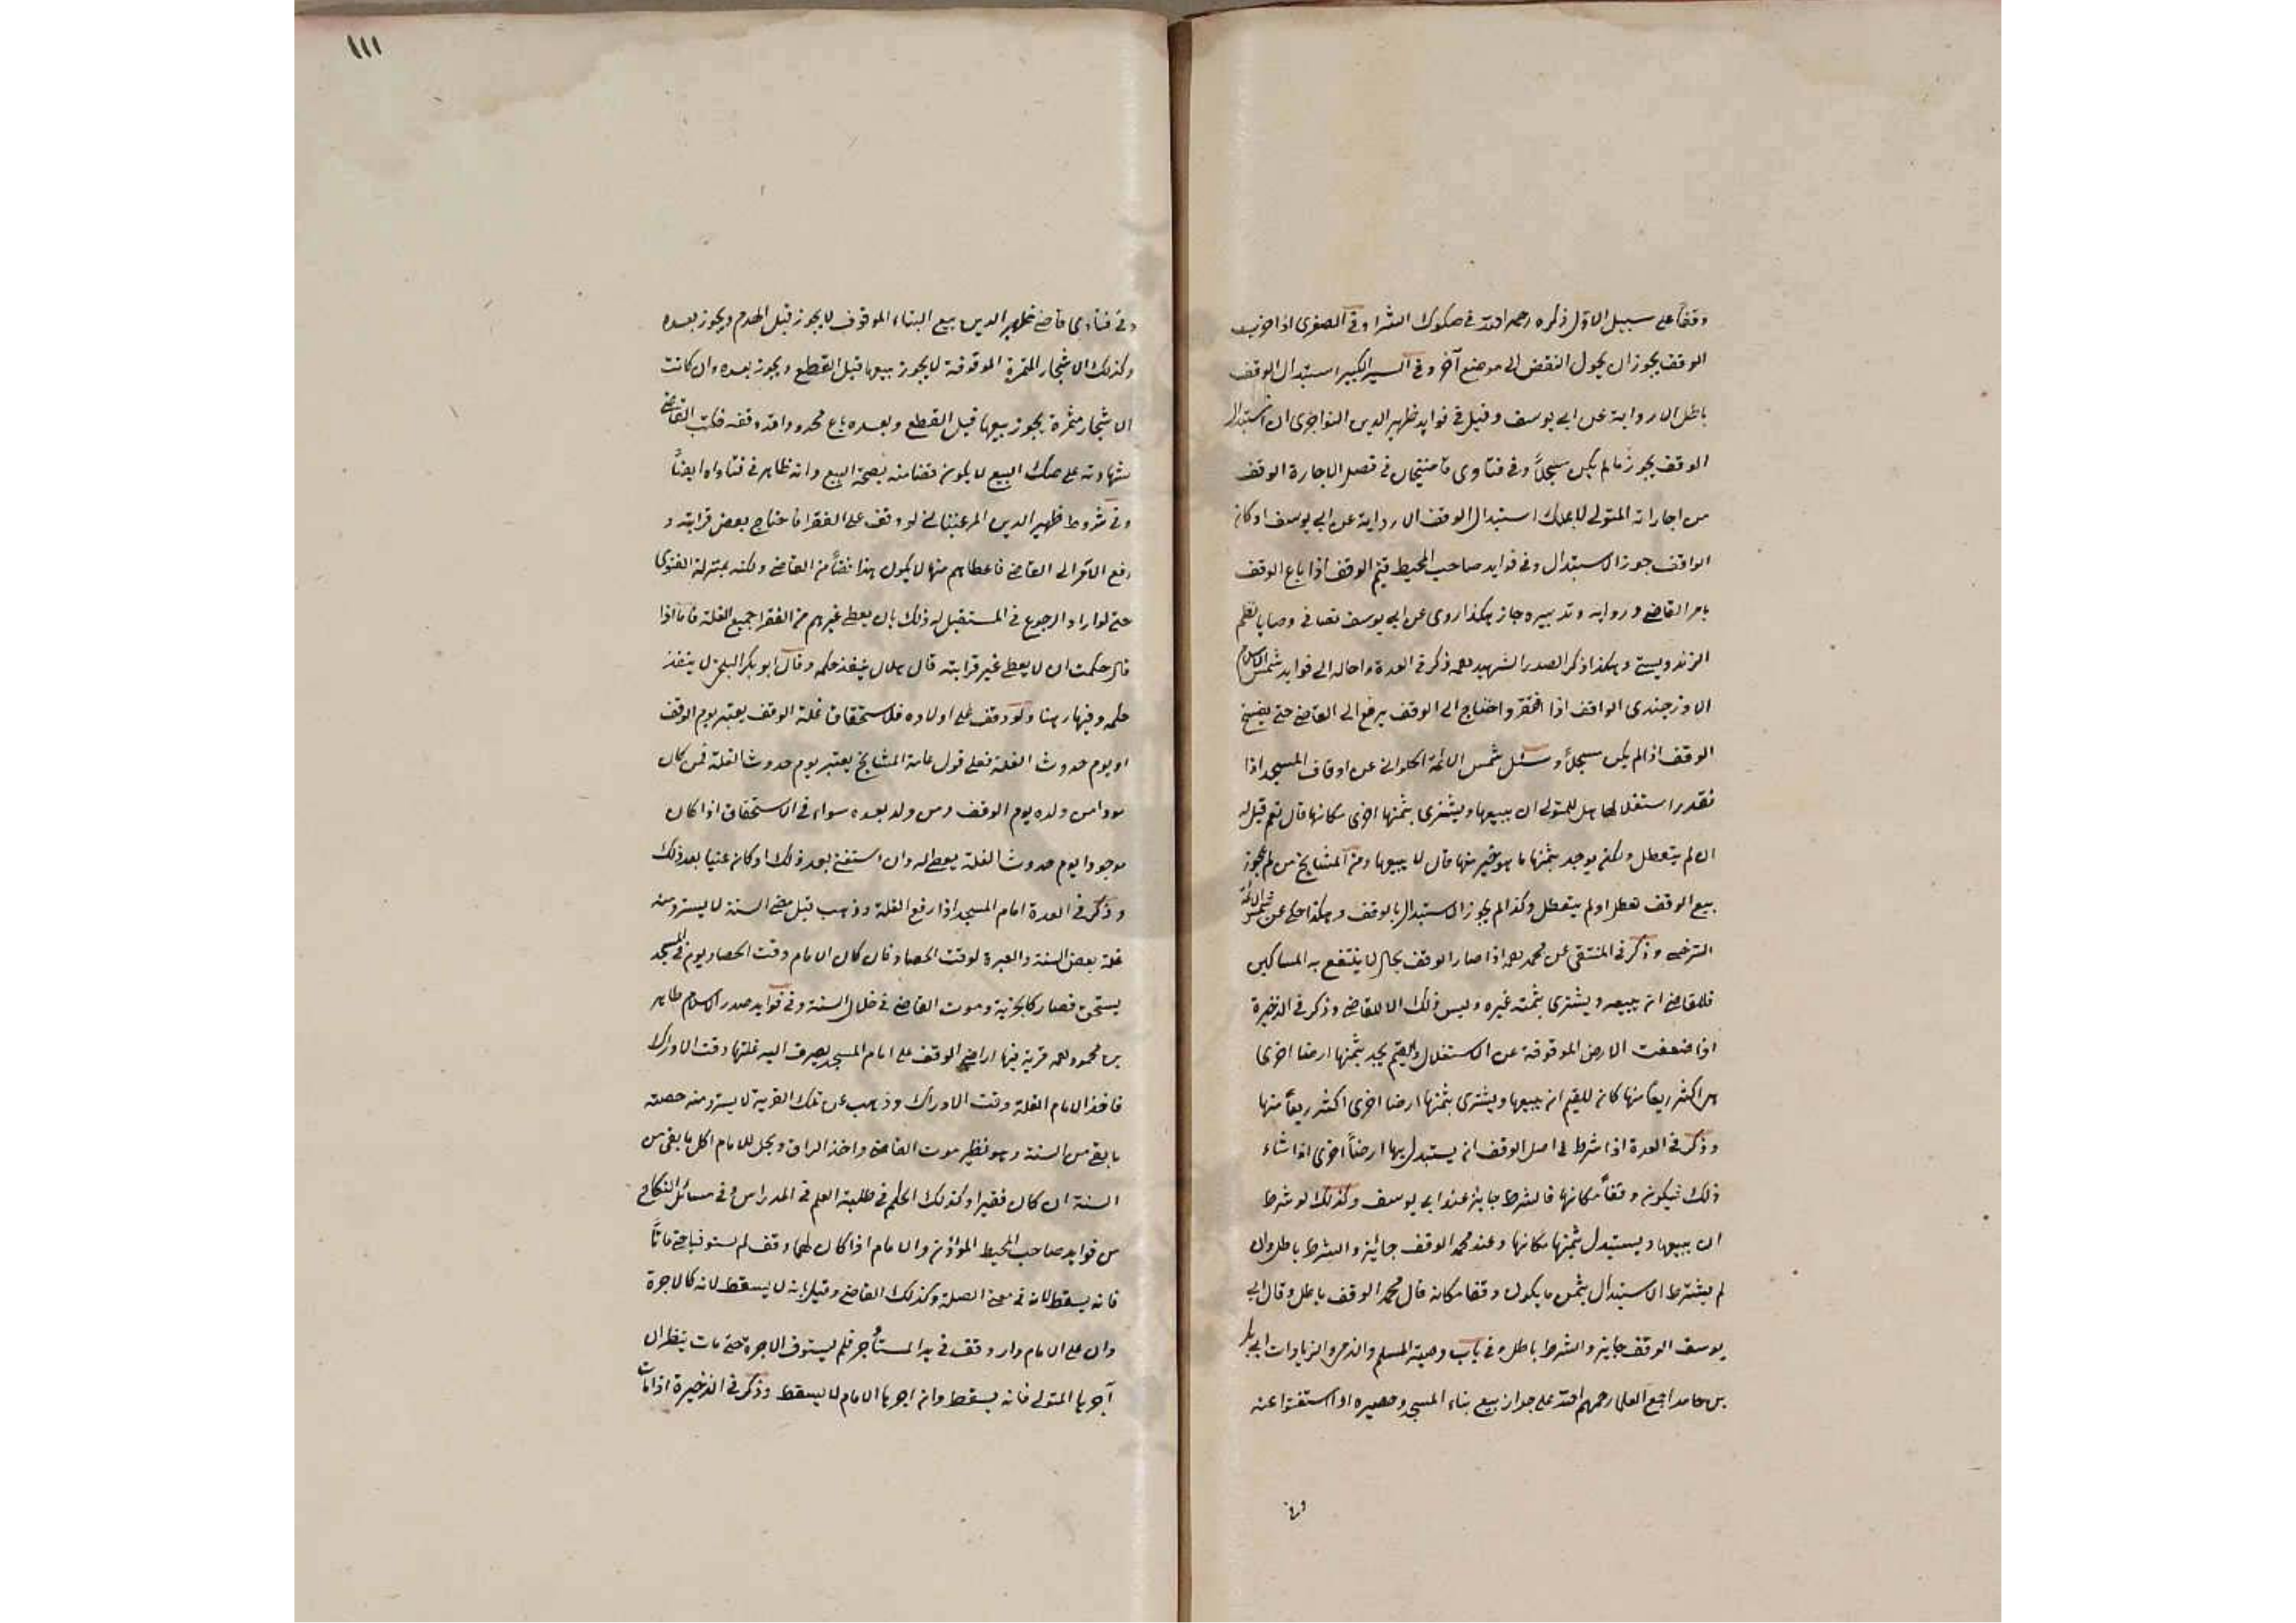 وقفا على سبيل الاول ذكره رحمه الله في صكوك الشرا وفي الصغرى اذا خرب
الوقف يجوز ان يحول النقض الى موضع آخر وفي السير الكبير استبدال الوقف
باطل الا رواية عن ابي يوسف وقيل في فوايد ظهير الدين ان استبدال
الوقف يجوز ما لم يكن مسجلاً وفي فتاوى قاضيخان في فصل الاجارة الوقف
من اجاراته المتولي لا يملك استبدال الوقف الا رواية عن ابي يوسف او كان
الواقف جوز الاستبدال وفي فوايد صاحب المحيط قيم الوقف اذا باع الوقف
بامر القاضي وروايه وتدبيره جاز هكذا روى عن ابي يوسف نصا في وصايا نظم
الزندويستي وهكذا ذكر الصدر الشهيد ذكر في العدة واحاله الى فوايد شمس الاسلام
الاوزجندى الواقف اذا افتقر واحتاج الى الوقف يرفع الى القاضي حتى يفسخ
الوقف اذا لم يكن مسجلاً وسئل شمس الائمة الحلواني عن اوقاف المسجد اذا
تعذر استغلالها هل للمتولي ان يبيعها ويشترى بثمنها اخرى مكانها قال نعم قيل له
ان لم يتعطل ولكن يوجد بثمنها ما هو خير منها قال لا يبيعها ومن المشايخ من لم يجوز
بيع الوقف تعطل او لم يتعطل وكذا لم يجوز الاستبدال بالوقف وهكذا حكى عن شمس الائمة
السرخسي وذكر في المنتقى عن محمد اذا صار الوقف بحال لا ينتفع به المساكين
فللقاضي ان يبيعه ويشترى بثمنه غيره وليس ذلك الا للقاضي وذكر في الذخيرة
اذا ضعفت الارض الموقوفة عن الاستغلال والقيم يجد بثمنها ارضا اخرى
هي اكثر ريعاً منها كان للقيم ان يبيعها ويشترى بثمنها ارضا اخرى اكثر ريعاً منها
وذكر في العدة اذا شرط في اصل الوقف ان يستبدل بها ارضاً اخرى اذا شاء
ذلك فيكون وقفاً مكانها فالشرط جايز عند ابي يوسف وكذلك لو شرط
ان يبيعها ويستبدل ثمنها مكانها وعند محمد الوقف جائز والشرط باطل وان
لم يشترط الاستبدال بثمن ما يكون وقفا مكانه قال محمد الوقف باطل وقال ابي
يوسف الوقف جايز والشرط باطل وفي باب وصية المسلم والذمي والزيادات ابي بكر
بن حامد اجمع العلما رحمهم الله على جواز بيع بناء المسجد وحصيره اذا استغنوا عنه
وفي
١١١
وفي فتاوى قاضي ظهير الدين بيع البناء الموقوف لا يجوز قبل الهدم ويجوز بعده
وكذلك الاشجار المثمرة الموقوفة لا يجوز بيعها قبل القطع ويجوز بعده وان كانت
الاشجار مثمرة يجوز بيعها قبل القطع وبعده باع محدودا قد وقفه فكتب القاضي
شهادته على صك البيع لا يكون قضا منه بصحة البيع وانه ظاهر في فتاواه ايضاً
وفي شروط ظهير الدين المرغيناني لو وقف على الفقرا فاحتاج بعض قرابته و
رفع الامر الى القاضي فاعطاهم منها لا يكون هذا قضاً من القاضي ولكنه بمنزلة الفتوى
حتى لو اراد الرجوع في المستقبل له ذلك بان يعطي غيرهم من الفقرا جميع الغلة فاما اذا
قال حكمت ان لا يعطي غير قرابته قال هلال ينفذ حكمه وقال ابو بكر البلخي لا ينفذ
حكمه وفيها رهنا ولو وقف على اولاده فلاستحقاق غلة الوقف يعتبر يوم الوقف
او يوم حدوث الغلة فعلى قول عامة المشايخ يعتبر يوم حدوث الغلة فمن كان
موجودا من ولده يوم الوقف ومن ولد بعده سواء في الاستحقاق اذا كان
موجودا يوم حدوث الغلة يعطي له وان استغنى بعد ذلك او كان غنيا بعد ذلك
وذكر في العدة امام المسجد اذا رفع الغلة وذهب قبل مضي السنة لا يسترد منه
غلة بعض السنة والعبرة لوقت الحصاد فان كان الامام وقت الحصاد يوم في المسجد
يستحق فصار كالجزية وموت القاضي في خلال السنة وفي فوايد صدر الاسلام طاهر
بن محمود قرية فيها اراضي الوقف على امام المسجد يصرف اليه غلتها وقت الادراك
فاخذ الامام الغلة وقت الادراك وذهب عن تلك القرية لا يسترد منه حصته
ما بقي من السنة وهو نظير موت القاضي واخذ الرزق ويحل للامام اكل ما بقي من
السنة ان كان فقيرا وكذلك الحكم في طلبة العلم في المدارس وفي مسائل النكاح
من فوايد صاحب المحيط المؤذن والامام اذا كان لهما وقف لم يستوفيا حتى ماتا
فانه يسقط لانه في معنى الصلة وكذلك القاضي وقيل بانه لا يسقط لانه كالاجرة
وان على الامام دار وقف في يد المستأجر فلم يستوف الاجرة حتى مات ينظر ان
آجرها المتولي فانه يسقط وان اجرها الامام لا يسقط وذكر في الذخيرة اذا مات